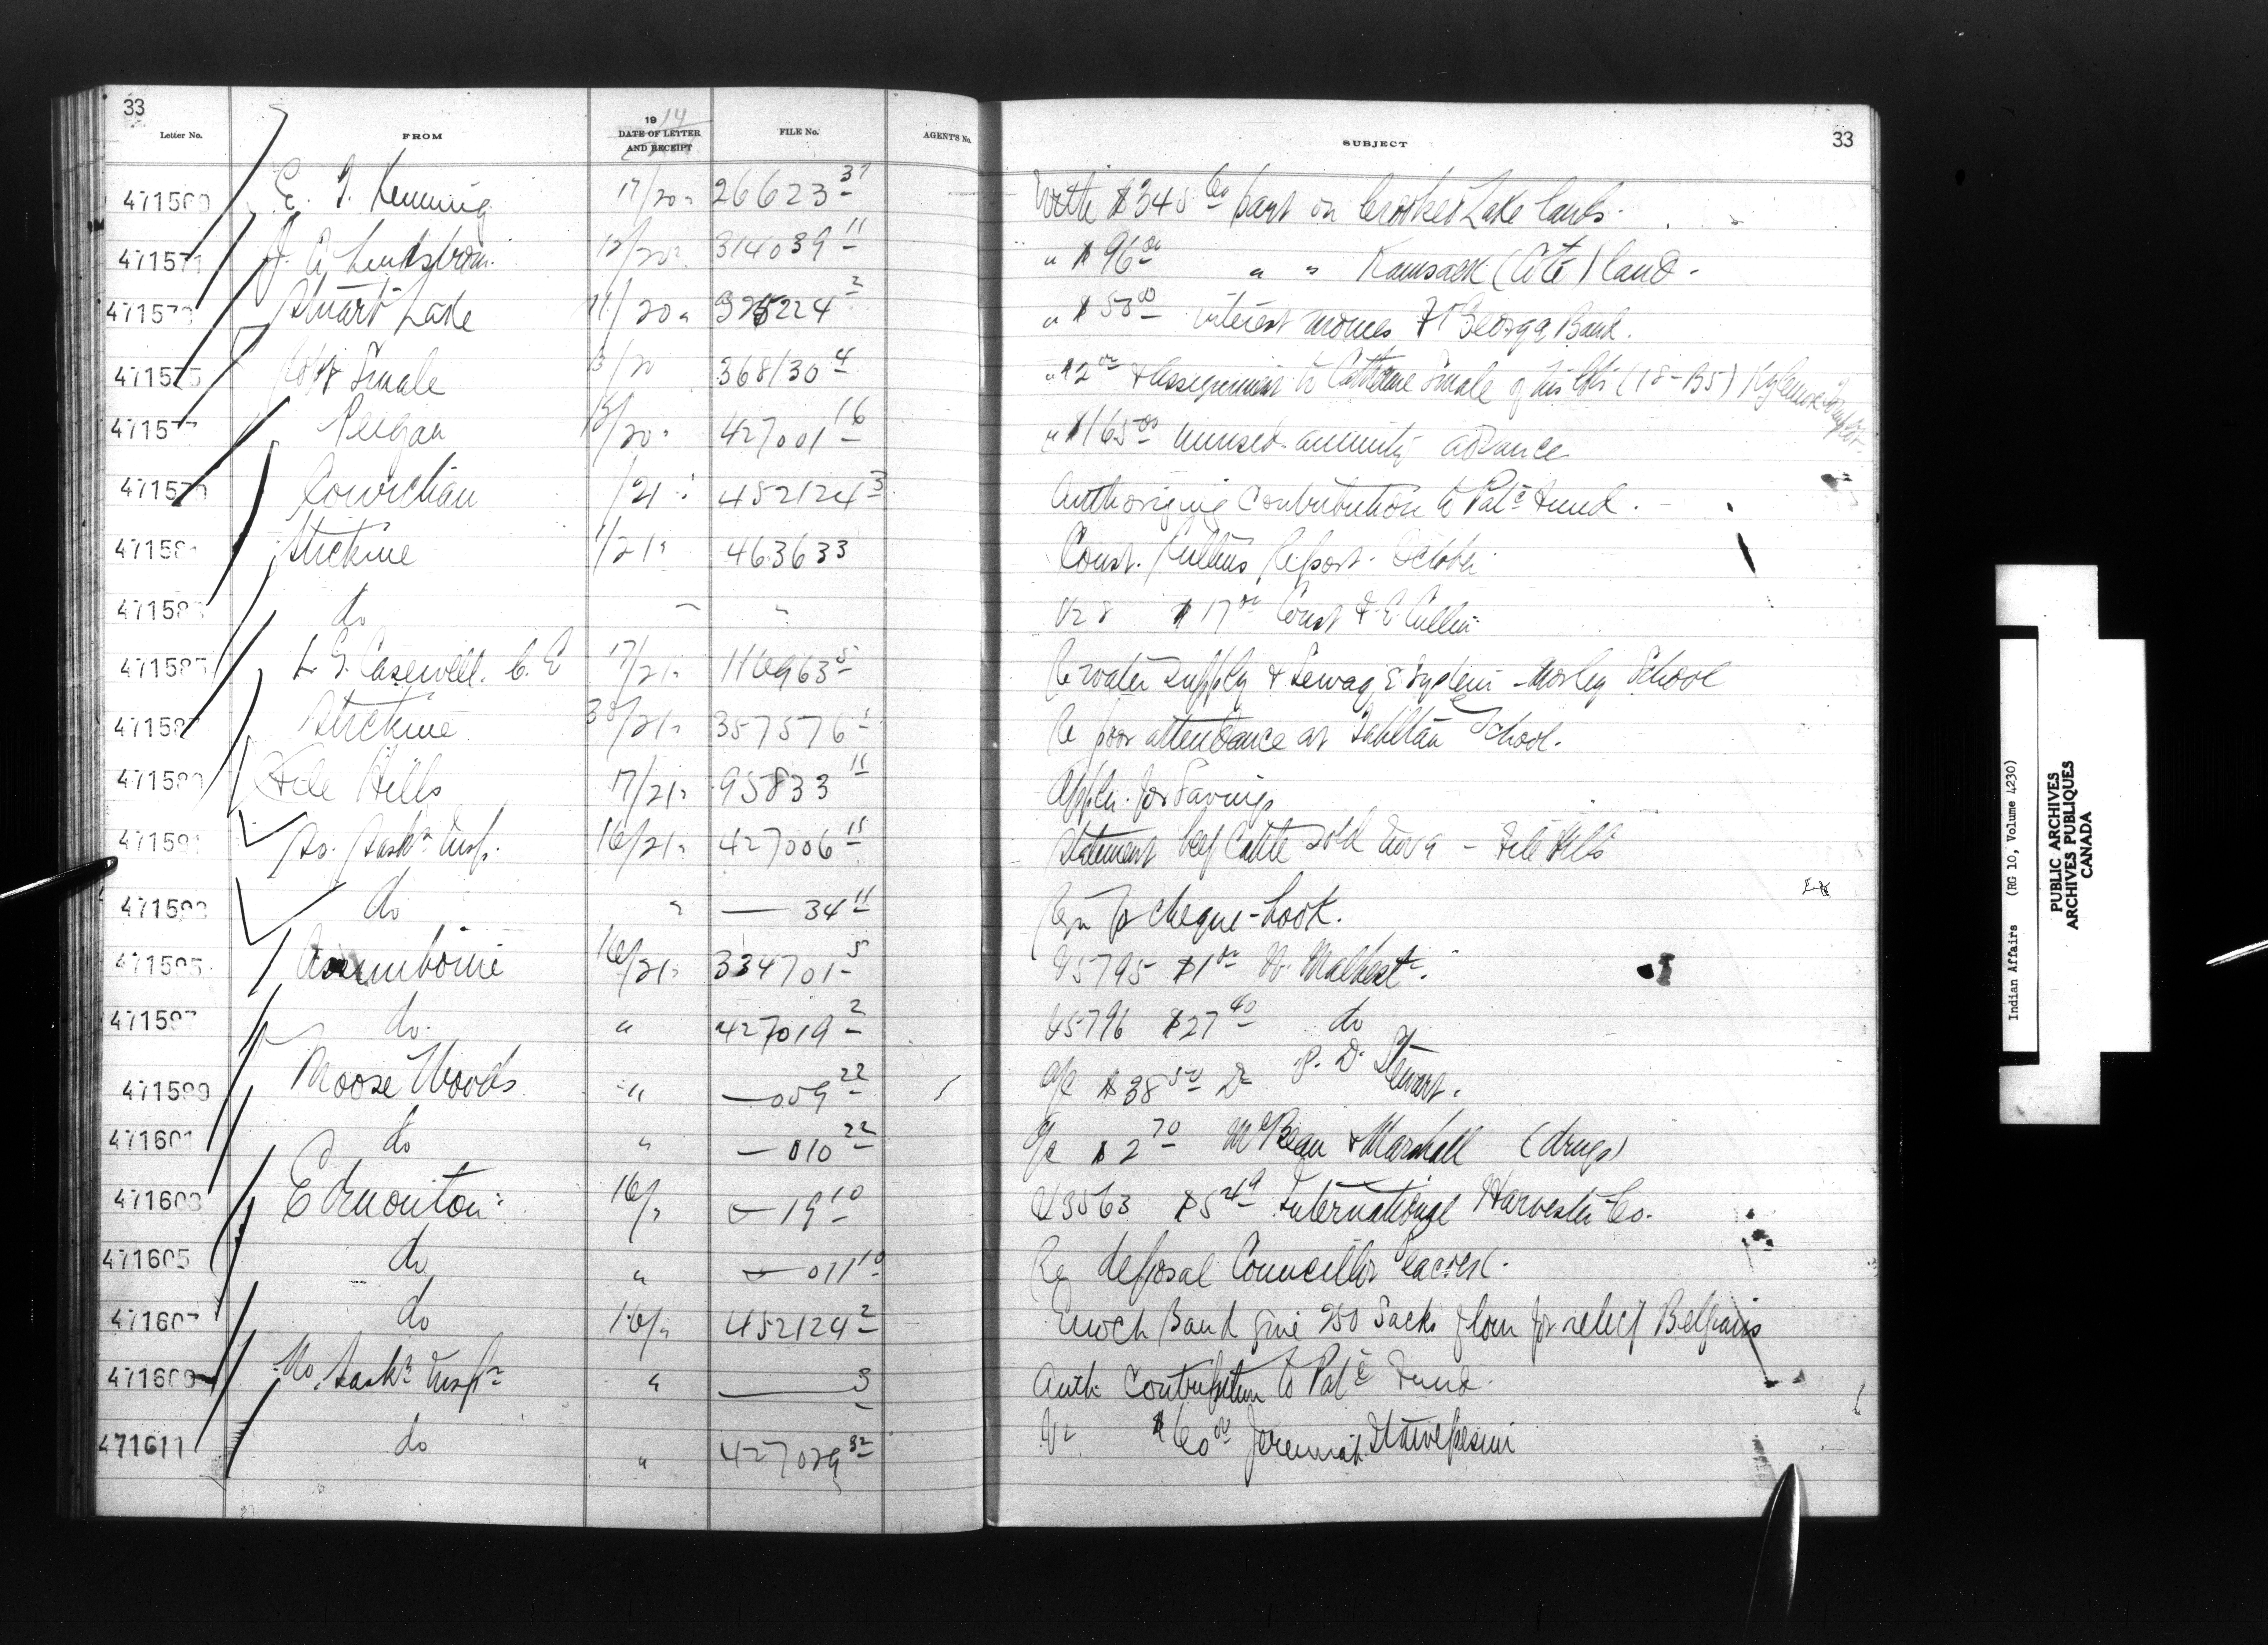 33
Letter No. FROM 1914 DATE OF LETTER AND RECEIPT FILE No. AGENT'S No. SUBJECT 33
471569 E. T. Kenning 17/20 26623 37 With $345 60 part on Crooked Lake lands.
471571 J. A. Lindstrom 12/20 314039 11 " $96 00 " " Kamsack (Coté) land.
471573 Stuart Lake 11/20 325224 2 " $58 00 interest monies Ft George Band.
471575 Smale 13/20 368130 4 " $2 00 & assignment to Catherine Smale of his lots (18-B5)
471577 Peigan 15/20 427001 16 " $165 00 unused annuity advance
471579 Cowichan /21 452124 3 Authorizing Contribution to Patc Fund.
471581 Stickine 1/21 463633 Const. Cullin's Report. October.
471583 do " " Vr 8 $17 00 Const F. E. Cullin
471585 L. G. Casewell. C. E 17/21 116963 5 Re water supply & Sewage System - Morley School
471587 Stickine 30/21 357576 1 Re poor attendance at Tahltan School.
471589 File Hills 17/21 95833 11 Appln. for Savings
471591 So. Saskn Insp. 16/21 427006 11 Statement beef cattle sold Nov 9 - File Hills
471593 do " — 34 11 Rqn for cheque-book.
471595 Assiniboine 16/21 334701 5 V5795 $1 00 N.
471597 do. " 427019 2 V5796 $27 40 do
471599 Moose Woods " — 059 22 a/c $38 50 Dr P. D. Stewart.
471601 do " — 010 22 a/c $2 70 McBean & Marshall (drugs)
471603 Edmonton 16/" — 19 10 V3563 $5 49 International Harvester Co.
471605 do " — 011 10 Re deposal Councillor
471607 do 16/" 452124 2 Enoch Band give 250 Sacks flour for relief Belgians
471609 No. Saskn Inspr " — 3 Auth Contribution to Patc Fund.
471611 do " 427029 32 Vr $60 00 Jeremiah
Indian Affairs (RG 10, Volume 4230)
PUBLIC ARCHIVES
ARCHIVES PUBLIQUES
CANADA